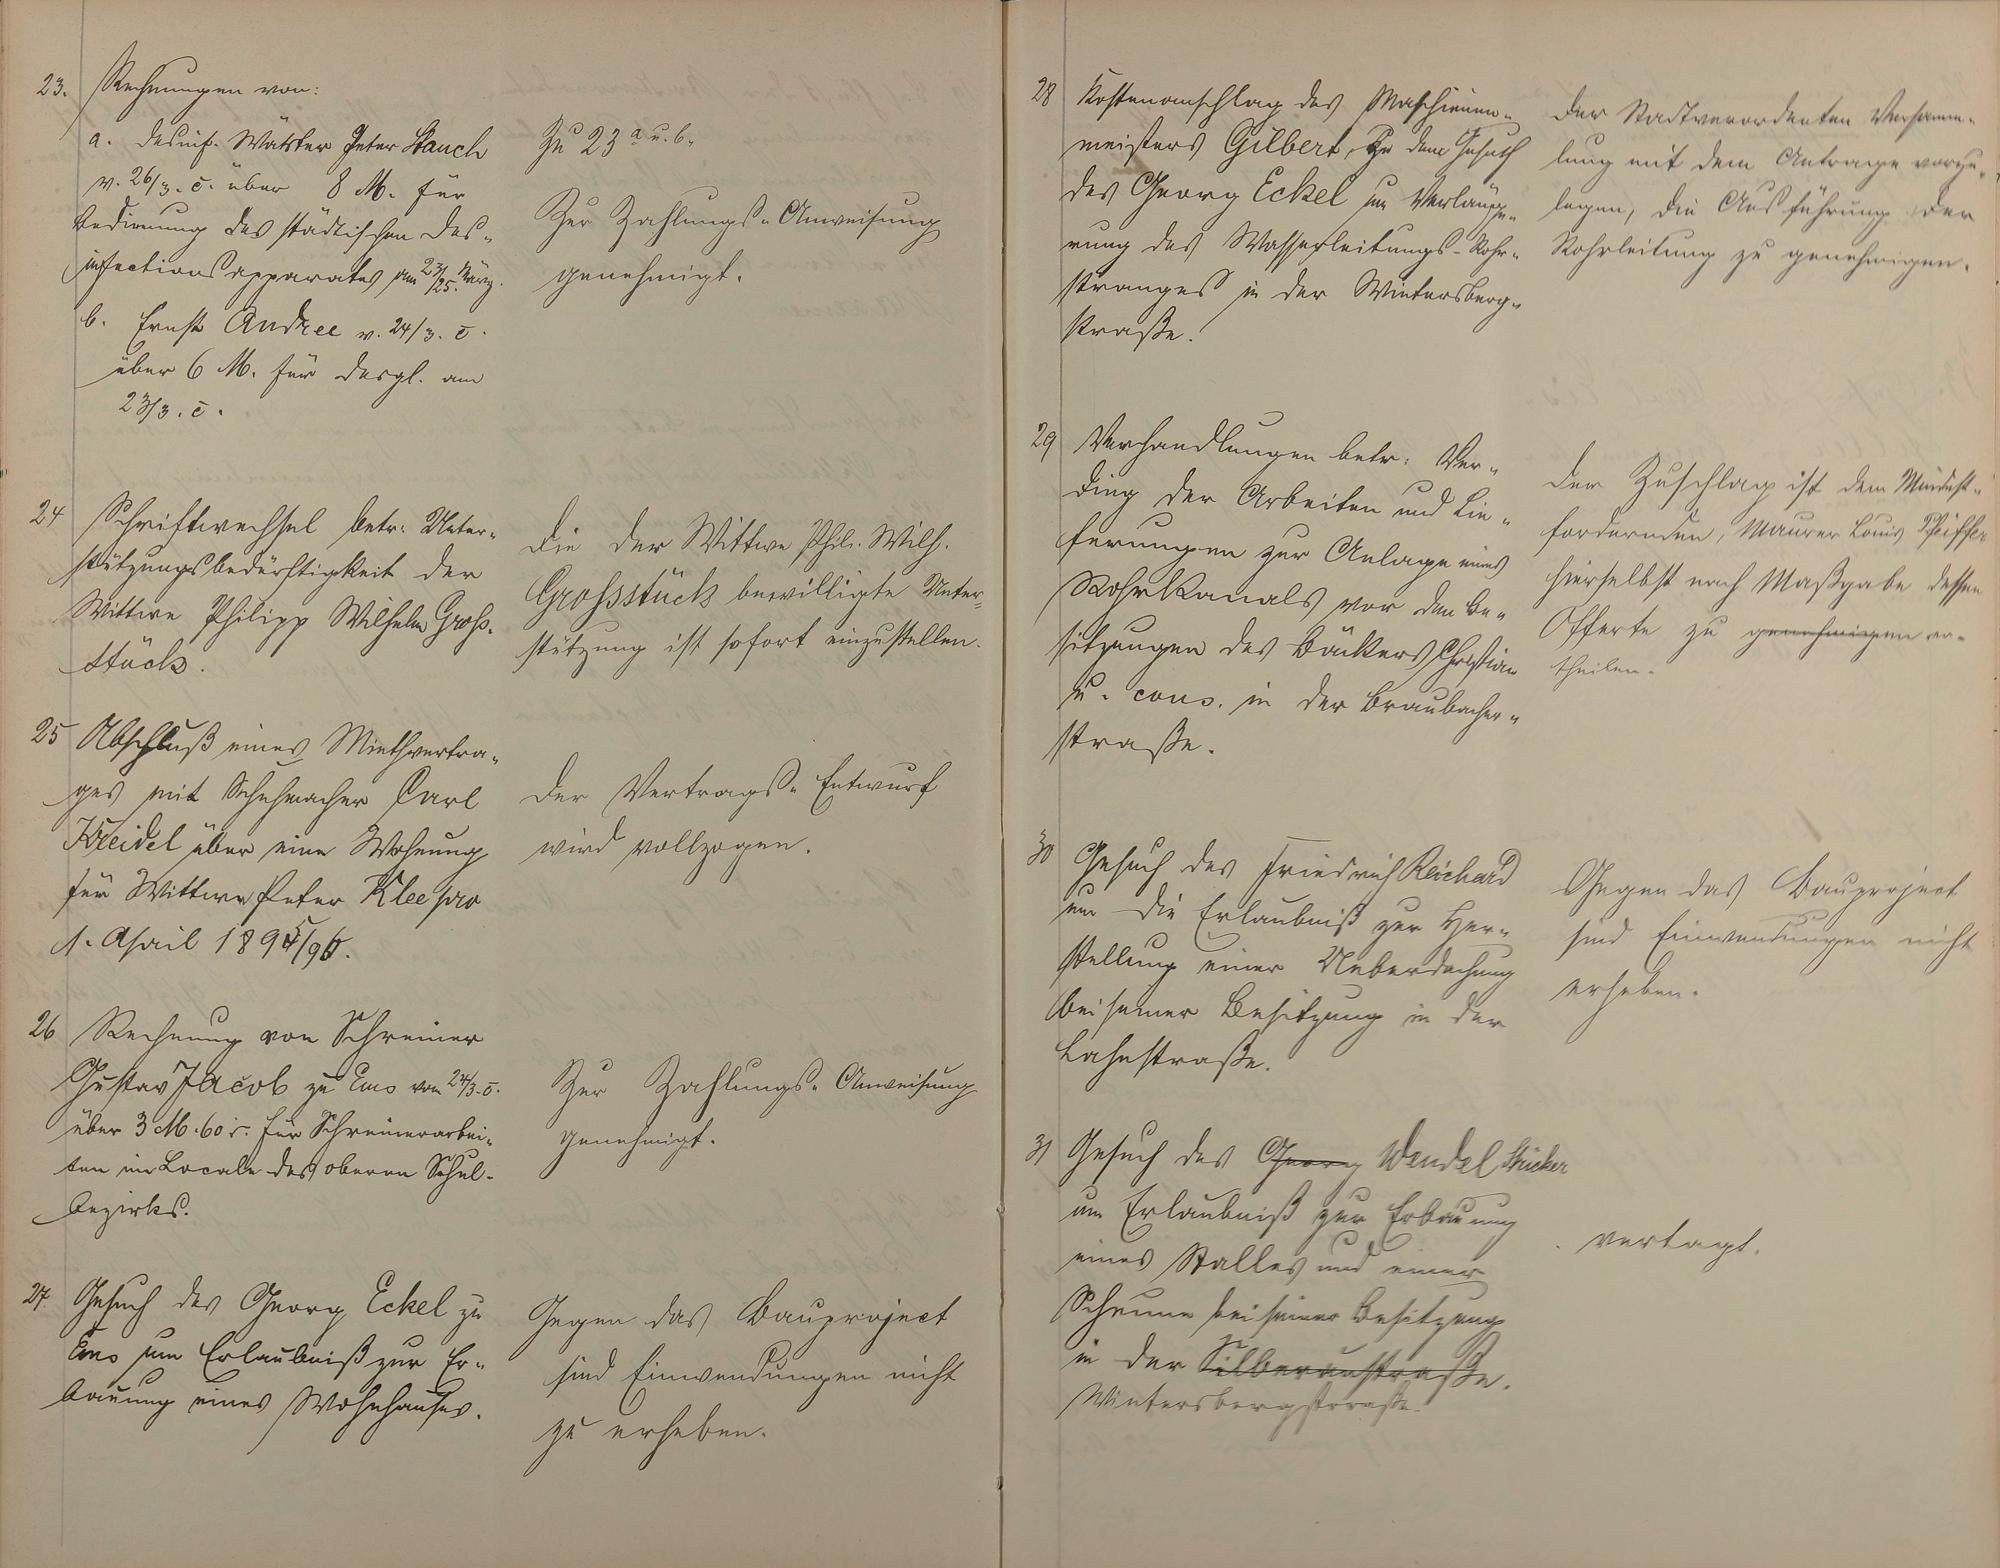 23. Rechnungen von:
a. desinf. Wärter Peter Stauch
v. 26/3. c. über 8 M. für
Bedienung des städtischen Des-
infectionsapparates am 23/25. März.
b. Ernst Andree v. 24/3. c.
über 6 M. für desgl. am
23/3. c.
Zu 23 a u. b.
Zur Zahlungs-Anweisung
genehmigt.
24 Schriftwechsel betr. Unter-
stützungsbedürftigkeit der
Wittwe Philipp Wilhelm Groß-
stück.
Die der Wittwe Phil. Wilh.
Grossstück bewilligte Unter-
stützung ist sofort einzustellen.
25 Abschluß eines Miethvertra-
ges mit Schuhmacher Carl
Kreidel über eine Wohnung
für Wittwe Peter Klee pro
1. April 1895/96.
Der Vertrags-Entwurf
wird vollzogen.
26 Rechnung von Schreiner
Gustav Jacob zu Ems vom 24/3. c.
über 3 M. 60 für Schreinerarbei-
ten im Locale des oberen Schul-
bezirks.
Zur Zahlungs-Anweisung
genehmigt.
27. Gesuch des Georg Eckel zu
Ems um Erlaubniß zur Er-
bauung eines Wohnhauses.
Gegen das Bauproject
sind Einwendungen nicht
zu erheben.
28 Kostenanschlag des Maschinen-
meisters Gilbert, zu dem Gesuch
des Georg Eckel um Verlänge-
rung des Wasserleitungs-Rohr-
stranges in der Wintersberg-
straße.
Der Stadtverordneten Versamm-
lung mit dem Antrage vorzu-
legen, die Ausführung der
Rohrleitung zu genehmigen.
29 Verhandlungen betr. Ver-
ding der Arbeiten und Lie-
ferungen zur Anlage eines
Rohrkanals vor den Be-
sitzungen des Bäckers Christian
u. cons. in der Braubacher-
straße.
Der Zuschlag ist dem Mindest-
fordernden, Maurer Louis Pfeiffer
hierselbst nach Maßgabe dessen
Offerte zu genehmigen er-
theilen.
30 Gesuch des Friedrich Reichard
um die Erlaubniß zur Her-
stellung einer Ueberdachung
bei seiner Besitzung in der
Lahnstraße.
Gegen das Bauproject
sind Einwendungen nicht
erheben.
31 Gesuch des Georg Wendel Stricker
um Erlaubniß zur Erbauung
eines Stalles und einer
Scheune bei seiner Besitzung
in der Silberaustraße.
Wintersbergstraße.
vertagt.